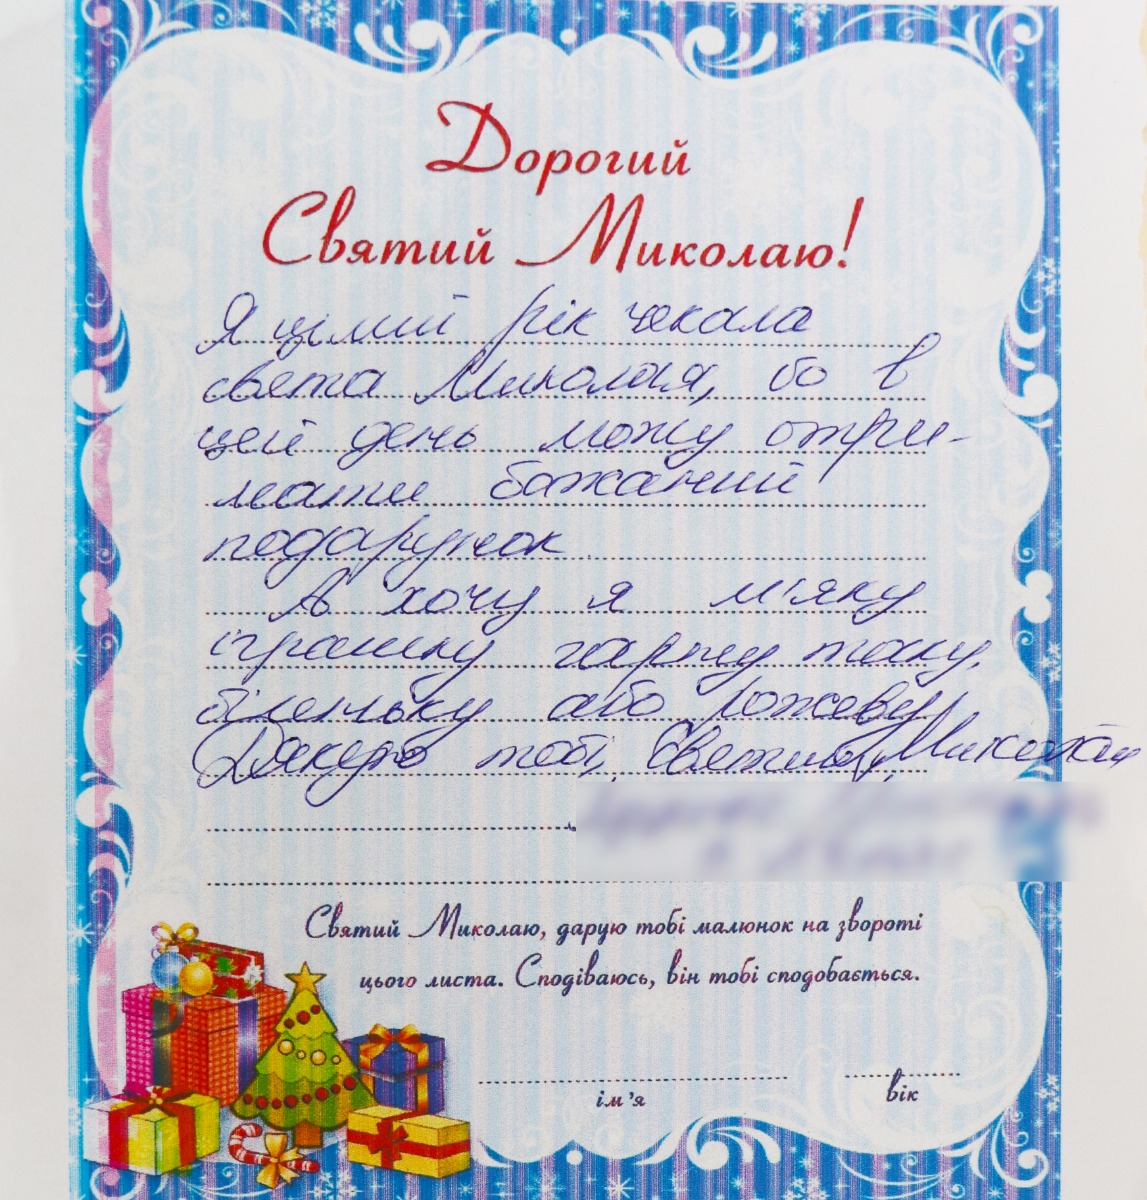 Дорогий
Святий Миколаю!
Я цілий рік чекала
свята Миколая, бо в
цей день можу отри-
мати бажаний
подарунок
А хочу я м'яку
іграшку гарну таку,
біленьку або рожеву
Дякую тобі, Святий Миколай
Святий Миколаю, дарую тобі малюнок на звороті
цього листа. Сподіваюсь, він тобі сподобається.
ім'я вік